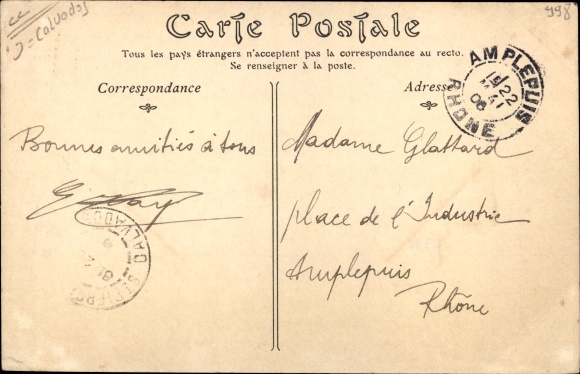 cc
Calvados
998
Carte Postale
Tous les pays étrangers n'acceptent pas la correspondance au recto.
Se renseigner à la poste.
Correspondance
Adresse
AMPLEPUIS
22
06
RHONE
Bonnes amitiés à tous
Madame Glattard
place de l'Industrie
Amplepuis
Rhône
CALVADOS